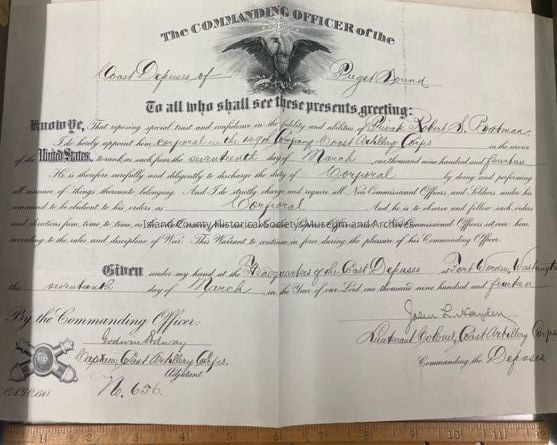 The COMMANDING OFFICER of the
Coast Defenses of Puget Sound
To all who shall see these presents, greeting:
Know Ye, That reposing special trust and confidence in the fidelity and abilities of Private Robert S. Bootman,
I do hereby appoint him corporal in the 149th Company Coast Artillery Corps in the service
of the United States, to rank as such from the seventeenth day of March one thousand nine hundred and fourteen
He is therefore carefully and diligently to discharge the duty of Corporal by doing and performing
all manner of things thereunto belonging. And I do strictly charge and require all Non Commissioned Officers and Soldiers under his
command to be obedient to his orders as Corporal And he is to observe and follow such orders
and directions from time to time, as Non Commissioned Officers set over him,
Island County Historical Society Museum and Archives
according to the rules and discipline of War. This Warrant to continue in force during the pleasure of his Commanding Officer.
Given under my hand at the Headquarters of the Coast Defenses at Fort Worden, Washington
this seventeenth day of March in the Year of our Lord one thousand nine hundred and fourteen
By the Commanding Officer:
John L. Hayden
Lieutenant Colonel, Coast Artillery Corps
Captain, Coast Artillery Corps,
Adjutant.
Commanding the Defenses
No. 656.
1 2 3 4 5 6 7 8 9 10 11 12